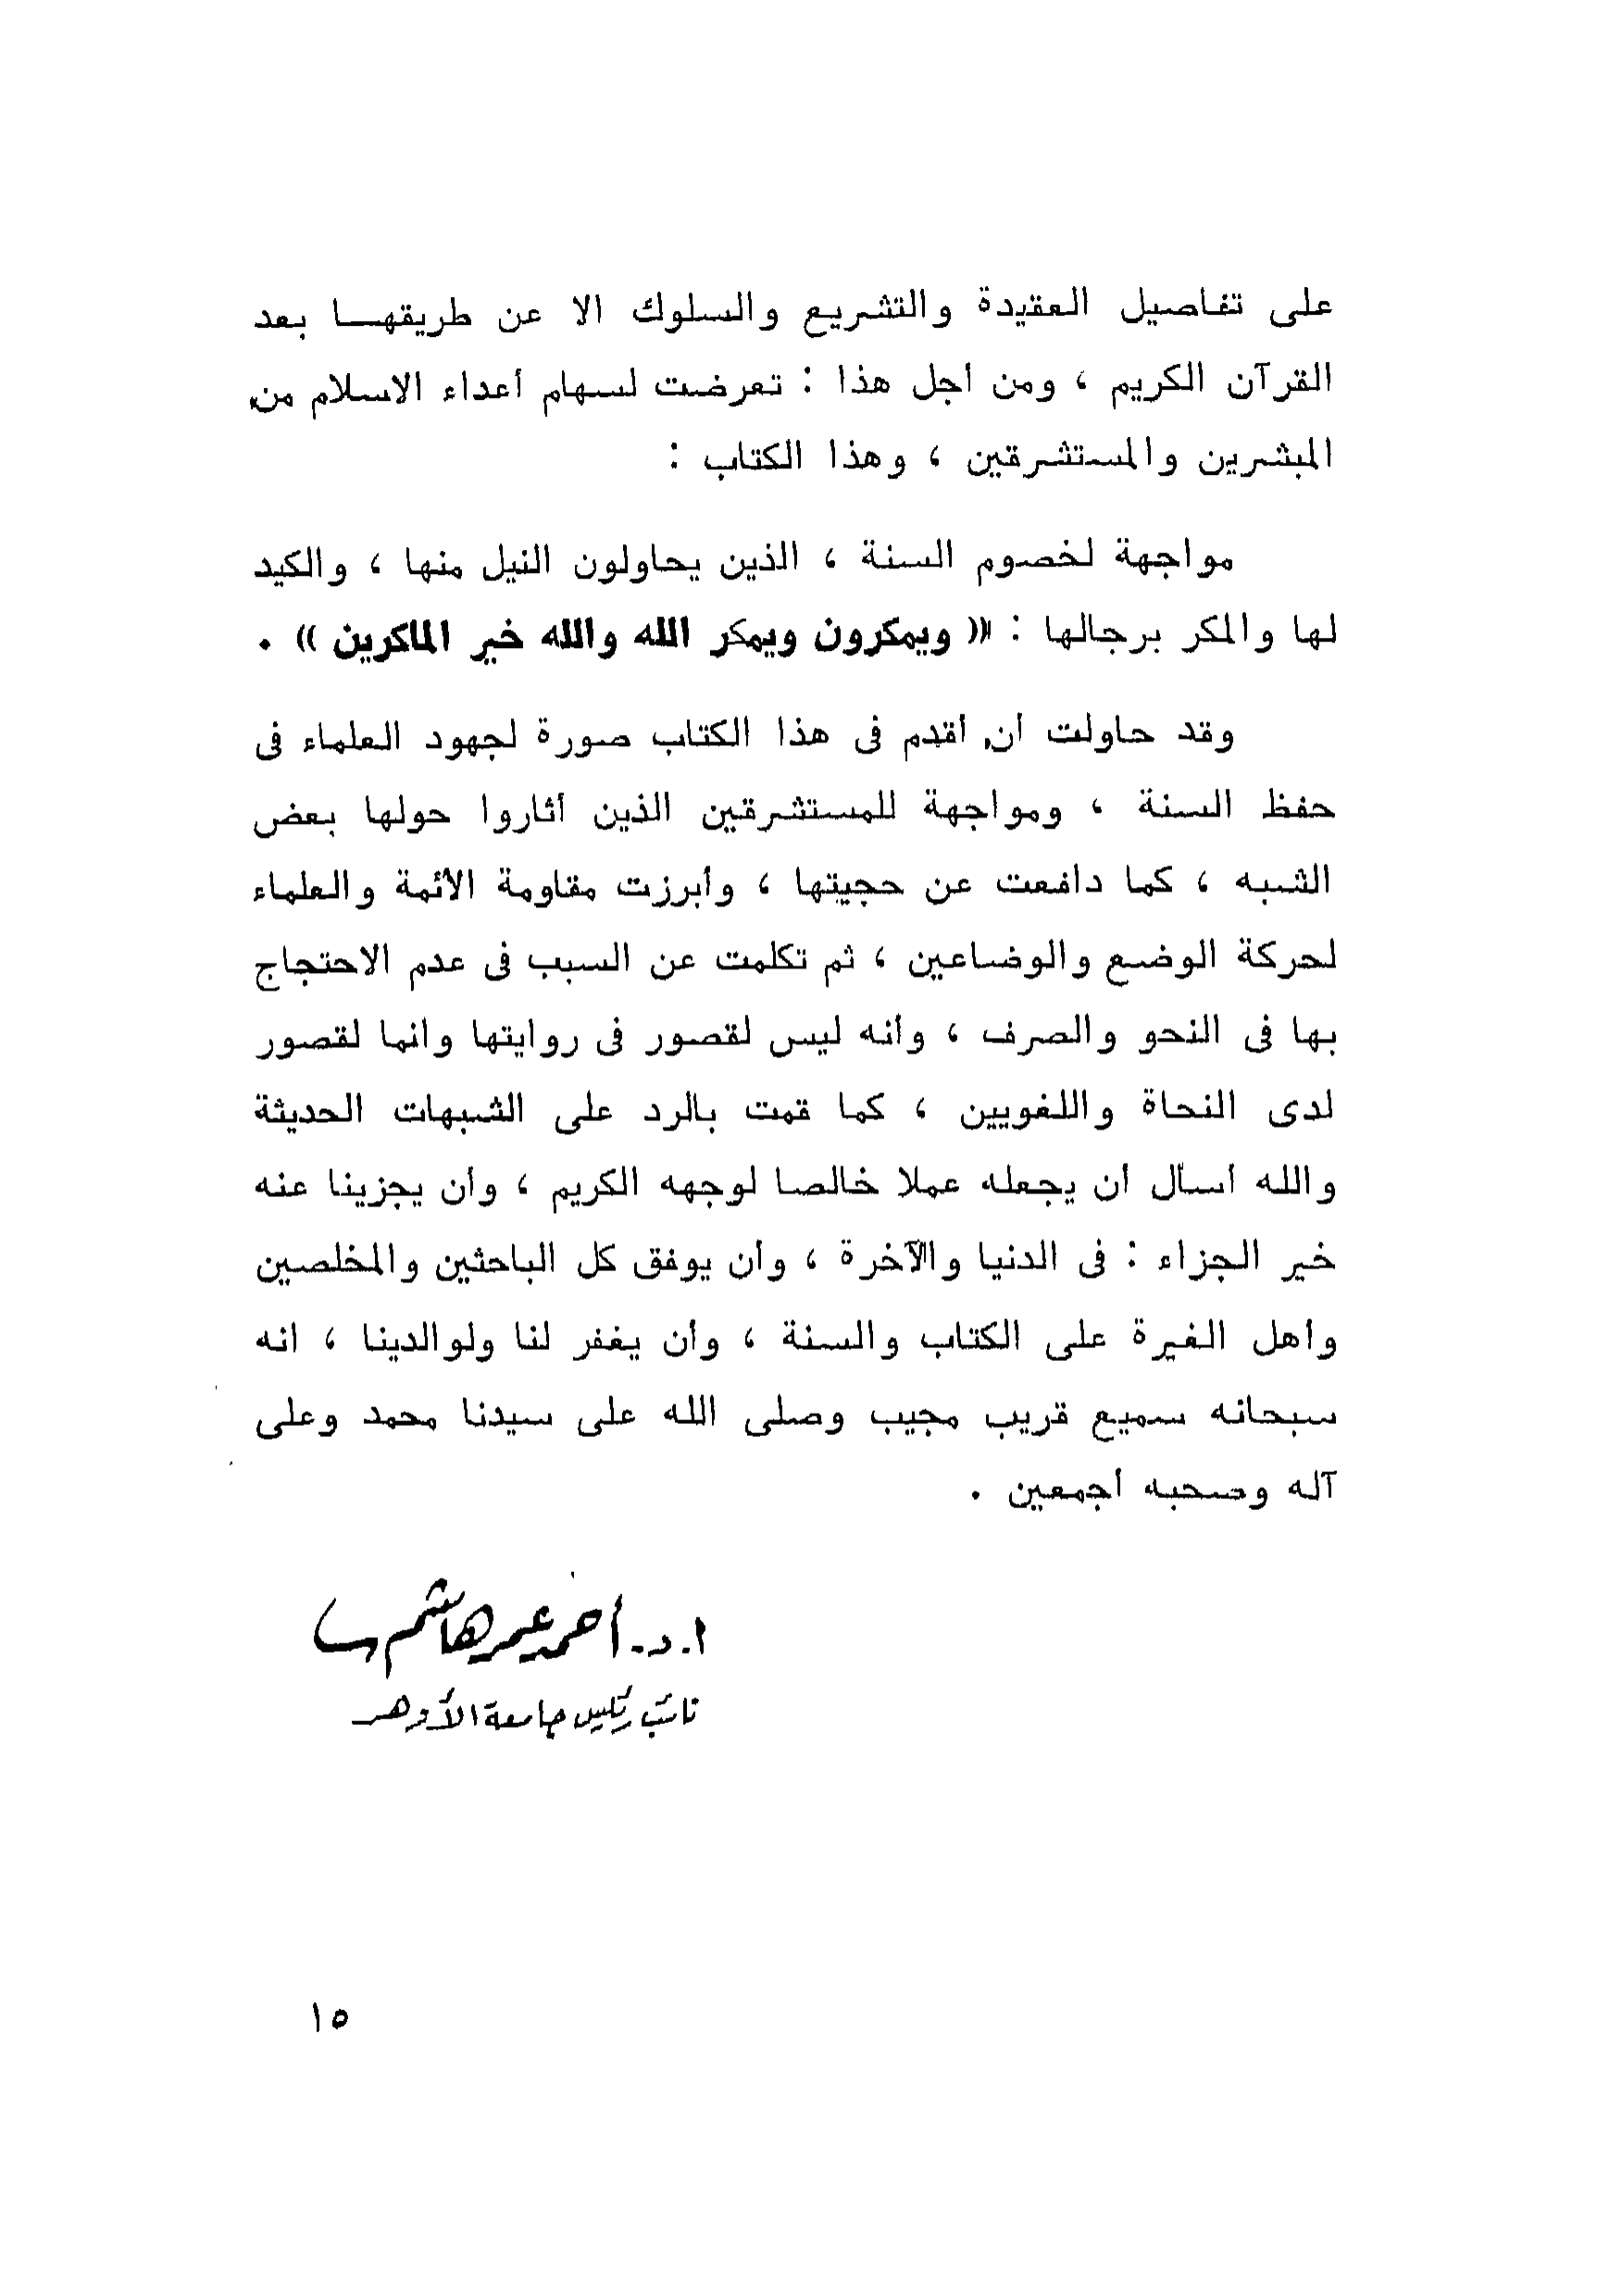 على تفاصيل العقيدة والتشريع والسلوك الا عن طريقهـــا بعد
القرآن الكريم ، ومن أجل هذا : تعرضت لسهام أعداء الاسلام من
المبشرين والمستشرقين ، وهذا الكتاب :
مواجهة لخصوم السنة ، الذين يحاولون النيل منها ، والكيد
لها والمكر برجالها : « ويمكرون ويمكر الله والله خير الماكرين » .
وقد حاولت أن أقدم فى هذا الكتاب صورة لجهود العلماء فى
حفظ السنة ، ومواجهة للمستشرقين الذين أثاروا حولها بعض
الشبه ، كما دافعت عن حجيتها ، وأبرزت مقاومة الأئمة والعلماء
لحركة الوضع والوضاعين ، ثم تكلمت عن السبب فى عدم الاحتجاج
بها فى النحو والصرف ، وأنه ليس لقصور فى روايتها وانما لقصور
لدى النحاة واللغويين ، كما قمت بالرد على الشبهات الحديثة
والله أسأل أن يجعله عملا خالصا لوجهه الكريم ، وأن يجزينا عنه
خير الجزاء : فى الدنيا والآخرة ، وأن يوفق كل الباحثين والمخلصين
وأهل الغيرة على الكتاب والسنة ، وأن يغفر لنا ولوالدينا ، انه
سبحانه سميع قريب مجيب وصلى الله على سيدنا محمد وعلى
آله وصحبه أجمعين .
ا. د. أحمد عمر هاشم
نائب رئيس جامعة الأزهر
١٥